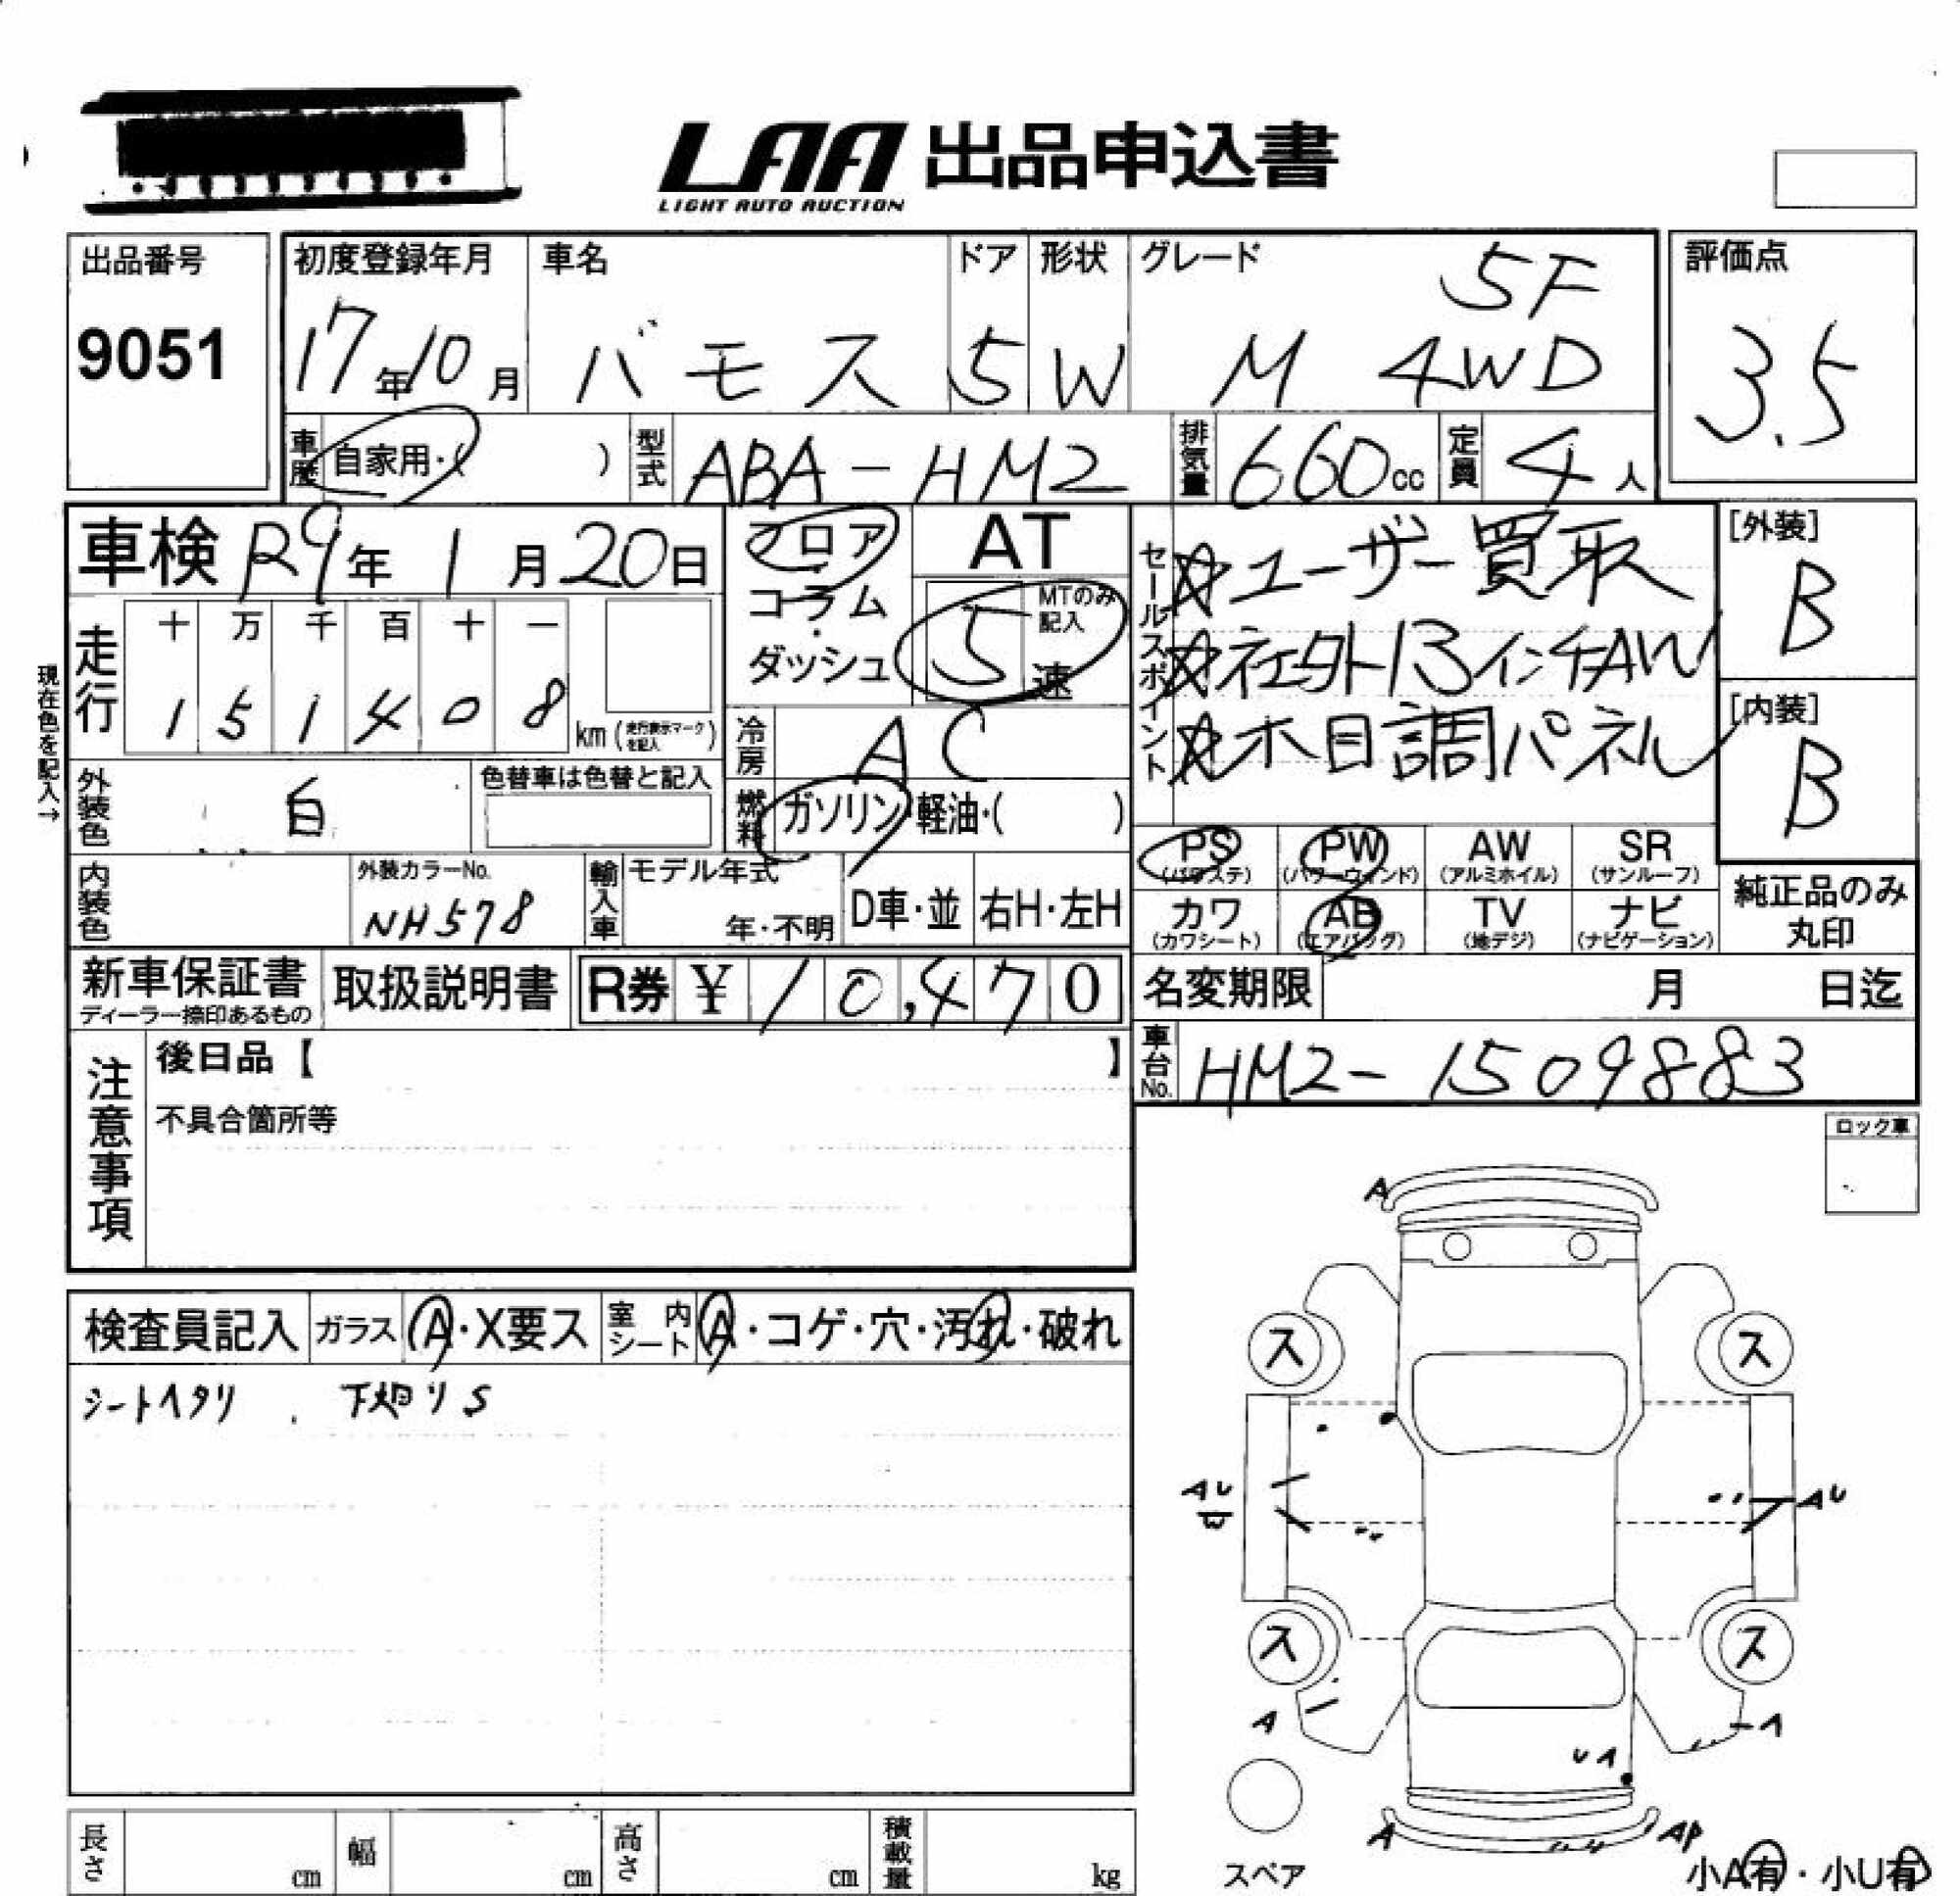 LAA 出品申込書
LIGHT AUTO AUCTION
出品番号
9051
初度登録年月
17年10月
車名
バモス
ドア
5
形状
W
グレード
5F
M 4WD
評価点
3.5
車歴
自家用・( )
型式
ABA-HM2
排気量
660cc
定員
4人
車検 R9年 1月20日
フロア
・
コラム
・
ダッシュ
AT
5
MTのみ
記入
速
セールスポイント
☆ユーザー買取
☆社外13インチAW
☆木目調パネル
[外装]
B
[内装]
B
現在色を記入→
走行
十 万 千 百 十 一
1 5 1 4 0 8
km (走行表示マークを記入)
冷房
AC
外装色
白
色替車は色替と記入
燃料
ガソリン・軽油・( )
PS
(パワステ)
PW
(パワーウィンド)
AW
(アルミホイル)
SR
(サンルーフ)
カワ
(カワシート)
AB
(エアバッグ)
TV
(地デジ)
ナビ
(ナビゲーション)
純正品のみ
丸印
内装色
外装カラーNo.
NH578
輸入車
モデル年式
年・不明
D車・並
右H・左H
新車保証書
ディーラー捺印あるもの
取扱説明書
R券 ¥10,470
名変期限 月 日迄
車台No.
HM2-1509883
注意事項
後日品【 】
不具合箇所等
ロック車
検査員記入
ガラス
A・X要ス
室内
シート
A・コゲ・穴・汚れ・破れ
シートヘタリ 下廻りS
A
ス ス
AU
AU
ス ス
A
A
UA
A
AP
スペア
小A有・小U有
長さ cm
幅 cm
高さ cm
積載量 kg